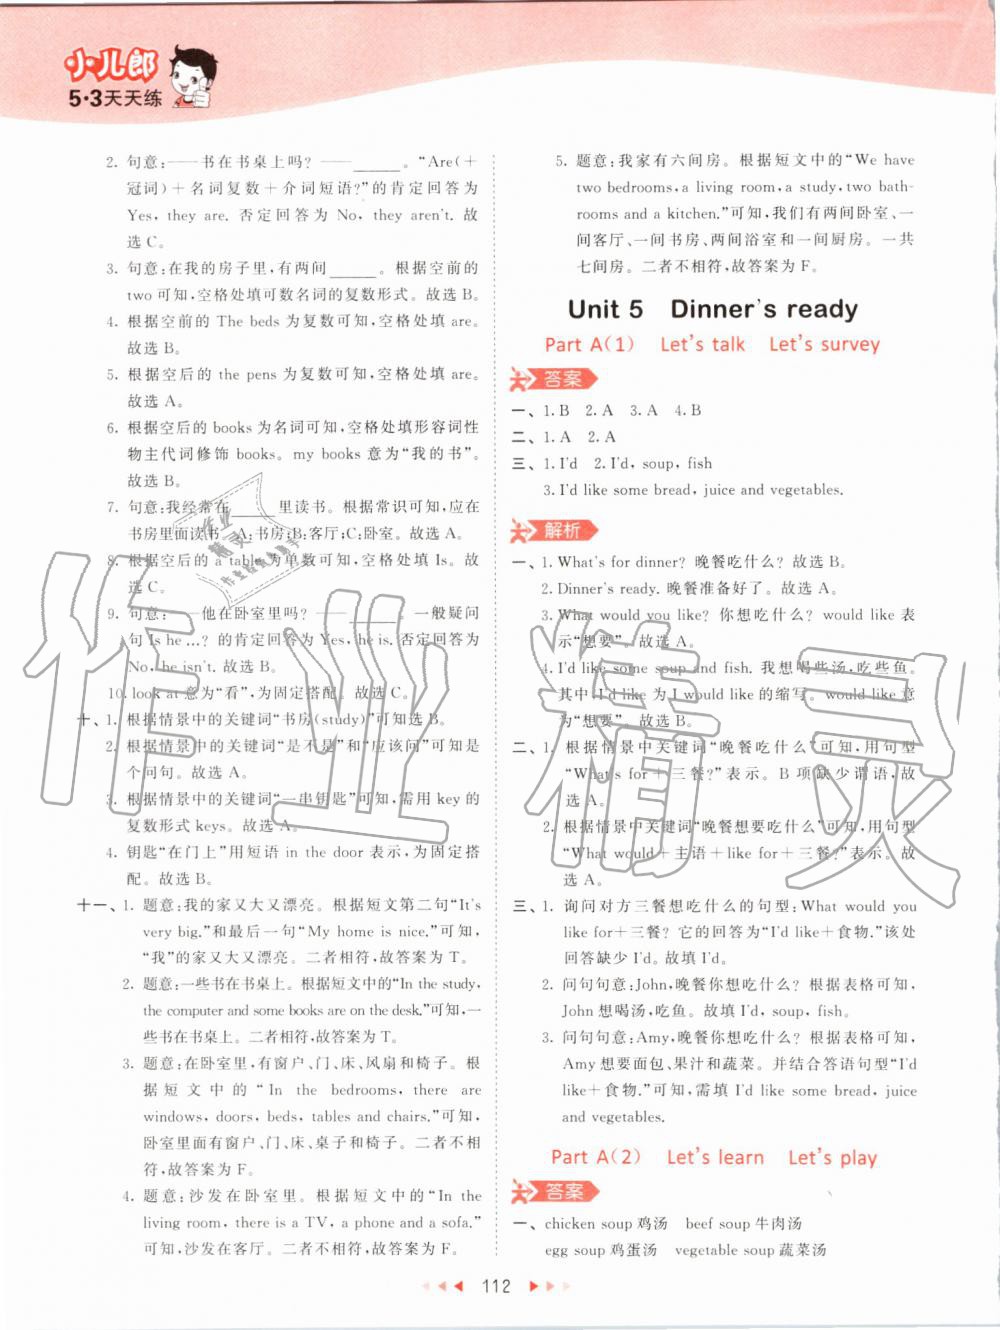 小儿郎
5·3天天练
2. 句意:——书在书桌上吗? ——______。“Are(+
冠词)+名词复数+介词短语?”的肯定回答为
Yes, they are. 否定回答为 No, they aren't. 故
选 C。
3. 句意:在我的房子里,有两间______。根据空前的
two 可知,空格处填可数名词的复数形式。故选 B。
4. 根据空前的 The beds 为复数可知,空格处填 are。
故选 B。
5. 根据空后的 the pens 为复数可知,空格处填 are。
故选 A。
6. 根据空后的 books 为名词可知,空格处填形容词性
物主代词修饰 books。my books 意为“我的书”。
故选 B。
7. 句意:我经常在______里读书。根据常识可知,应在
书房里面读书。A:书房;B:客厅;C:卧室。故选 A。
8. 根据空后的 a table 为单数可知,空格处填 Is。故
选 C。
9. 句意:——他在卧室里吗? ——______。一般疑问
句 Is he …? 的肯定回答为 Yes, he is. 否定回答为
No, he isn't. 故选 B。
10. look at 意为“看”,为固定搭配。故选 C。
十、1. 根据情景中的关键词“书房(study)”可知选 B。
2. 根据情景中的关键词“是不是”和“应该问”可知是
个问句。故选 A。
3. 根据情景中的关键词“一串钥匙”可知,需用 key 的
复数形式 keys。故选 A。
4. 钥匙“在门上”用短语 in the door 表示,为固定搭
配。故选 B。
十一、1. 题意:我的家又大又漂亮。根据短文第二句“It's
very big.”和最后一句“My home is nice.”可知,
“我”的家又大又漂亮。二者相符,故答案为 T。
2. 题意:一些书在书桌上。根据短文中的“In the study,
the computer and some books are on the desk.”可知,一
些书在书桌上。二者相符,故答案为 T。
3. 题意:在卧室里,有窗户、门、床、风扇和椅子。根
据短文中的“In the bedrooms, there are
windows, doors, beds, tables and chairs.”可知,
卧室里面有窗户、门、床、桌子和椅子。二者不相
符,故答案为 F。
4. 题意:沙发在卧室里。根据短文中的“In the
living room, there is a TV, a phone and a sofa.”
可知,沙发在客厅。二者不相符,故答案为 F。
5. 题意:我家有六间房。根据短文中的“We have
two bedrooms, a living room, a study, two bath-
rooms and a kitchen.”可知,我们有两间卧室、一
间客厅、一间书房、两间浴室和一间厨房。一共
七间房。二者不相符,故答案为 F。
Unit 5 Dinner's ready
Part A(1) Let's talk Let's survey
答案
一、1. B 2. A 3. A 4. B
二、1. A 2. A
三、1. I'd 2. I'd, soup, fish
3. I'd like some bread, juice and vegetables.
解析
一、1. What's for dinner? 晚餐吃什么? 故选 B。
2. Dinner's ready. 晚餐准备好了。故选 A。
3. What would you like? 你想吃什么? would like 表
示“想要”。故选 A。
4. I'd like some soup and fish. 我想喝些汤,吃些鱼。
其中 I'd like 为 I would like 的缩写。would like 意
为“想要”。故选 B。
二、1. 根据情景中关键词“晚餐吃什么”可知,用句型
“What's for+三餐?”表示。B 项缺少谓语,故
选 A。
2. 根据情景中关键词“晚餐想要吃什么”可知,用句型
“What would+主语+like for+三餐?”表示。故
选 A。
三、1. 询问对方三餐想吃什么的句型:What would you
like for+三餐? 它的回答为“I'd like+食物.”该处
回答缺少 I'd。故填 I'd。
2. 问句句意:John,晚餐你想吃什么? 根据表格可知,
John 想喝汤,吃鱼。故填 I'd, soup, fish。
3. 问句句意:Amy,晚餐你想吃什么? 根据表格可知,
Amy 想要面包、果汁和蔬菜。并结合答语句型“I'd
like+食物.”可知,需填 I'd like some bread, juice
and vegetables.
Part A(2) Let's learn Let's play
答案
一、chicken soup 鸡汤 beef soup 牛肉汤
egg soup 鸡蛋汤 vegetable soup 蔬菜汤
112
作业精灵